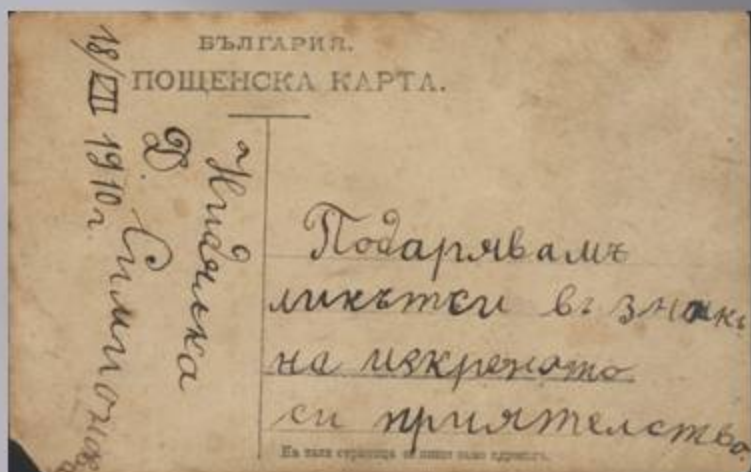 БЪЛГАРИЯ.
ПОЩЕНСКА КАРТА.
18/VII 1910 г.
Д. Симионов
Подарявамъ
ликътси въ знакъ
на искреното
си приятелство.
На тази страница се пише само адресътъ.